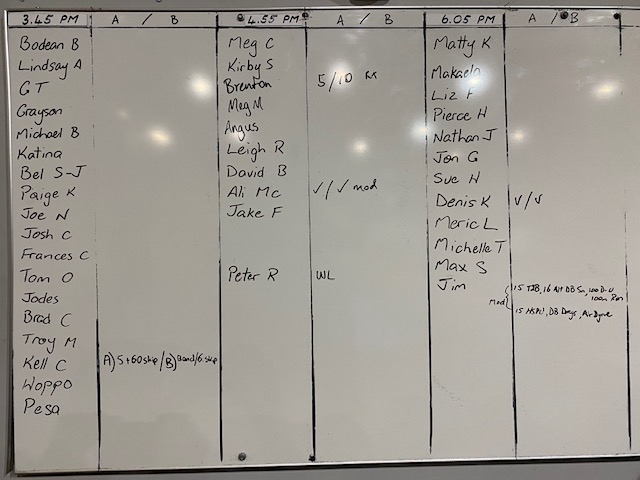 3.45 PM A / B 4.55 PM A / B 6.05 PM A / B
Bodean B
Lindsay A
GT
Grayson
Michael B
Katina
Bel S-J
Paige K
Joe N
Josh C
Frances C
Tom O
Jodes
Brad C
Troy M
Kell C A) 5+60 skip / B) Band/6.skip
Woppo
Pesa
Meg C
Kirby S
Brenton 5/10
Meg M
Angus
Leigh R
David B
Ali Mc √/√ mod
Jake F
Peter R WL
Matty K
Makaela
Liz F
Pierce H
Nathan J
Jon G
Sue H
Denis K √/√
Meric L
Michelle T
Max S
Jim mod { 15 TJB, 16 Alt DB Sn, 100 D-U
100m Run
15 HSPU, DB Devs, Air Dyne